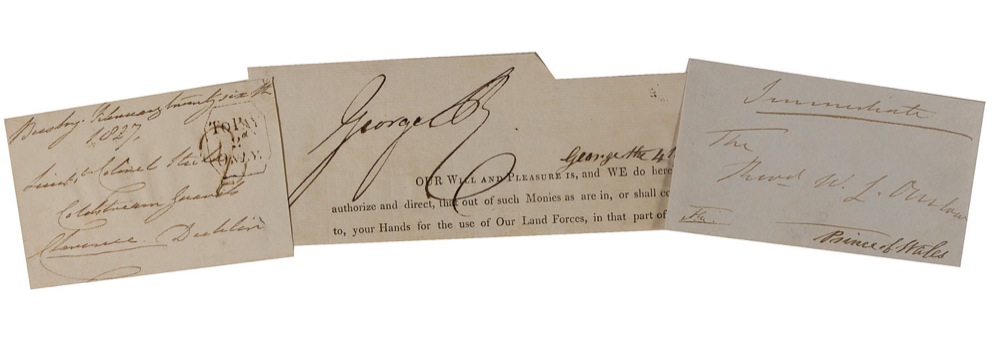 Bushy February twenty six th
1827.
TO PAY
2d
ONLY.
Lieut Colonel
Coldstream Guards
Clarence Dublin
George R
George the 4th
OUR WILL AND PLEASURE IS, and WE do here
authorize and direct, that out of such Monies as are in, or shall co
to, your Hands for the use of Our Land Forces, in that part of
Immediate
The
W. L. Onslow
Prince of Wales